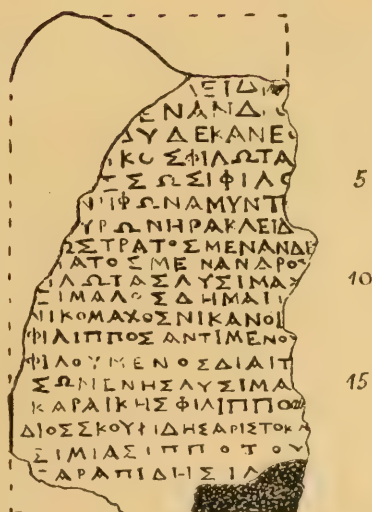 ΛΕΙΔ
ΕΝΑΝΔ
ΟΥΔΕΚΑΝΕ
ΙΚΟΣΦΙΛΩΤΑ 5
ΣΣΩΣΙΦΙΛΟ
ΝΙΦΩΝΑΜΥΝΤ
ΥΡΩΝΗΡΑΚΛΕΙΔ
ΩΣΤΡΑΤΟΣΜΕΝΑΝΔΕ
ΑΤΟΣΜΕΝΑΝΔΡΟΣ 10
ΙΛΩΤΑΣΛΥΣΙΜΑΧ
ΣΙΜΑΛΟΣΔΗΜΑΙ
ΝΙΚΟΜΑΧΟΣΝΙΚΑΝΟΙ
ΦΙΛΙΠΠΟΣΑΝΤΙΜΕΝΟ
ΦΙΛΟΥΜΕΝΟΣΔΙΑΙΤ
ΣΩΝΕΝΗΣΛΥΣΙΜΑ 15
ΚΑΡΑΙΚΗΣΦΙΛΙΠΠΟ
ΔΙΟΣΣΚΟΥΡΙΔΗΣΑΡΙΣΤΟΚΛ
ΣΙΜΙΑΣΙΠΠΟΤΟΥ
ΣΑΡΑΠΙΔΗΣΙΛ